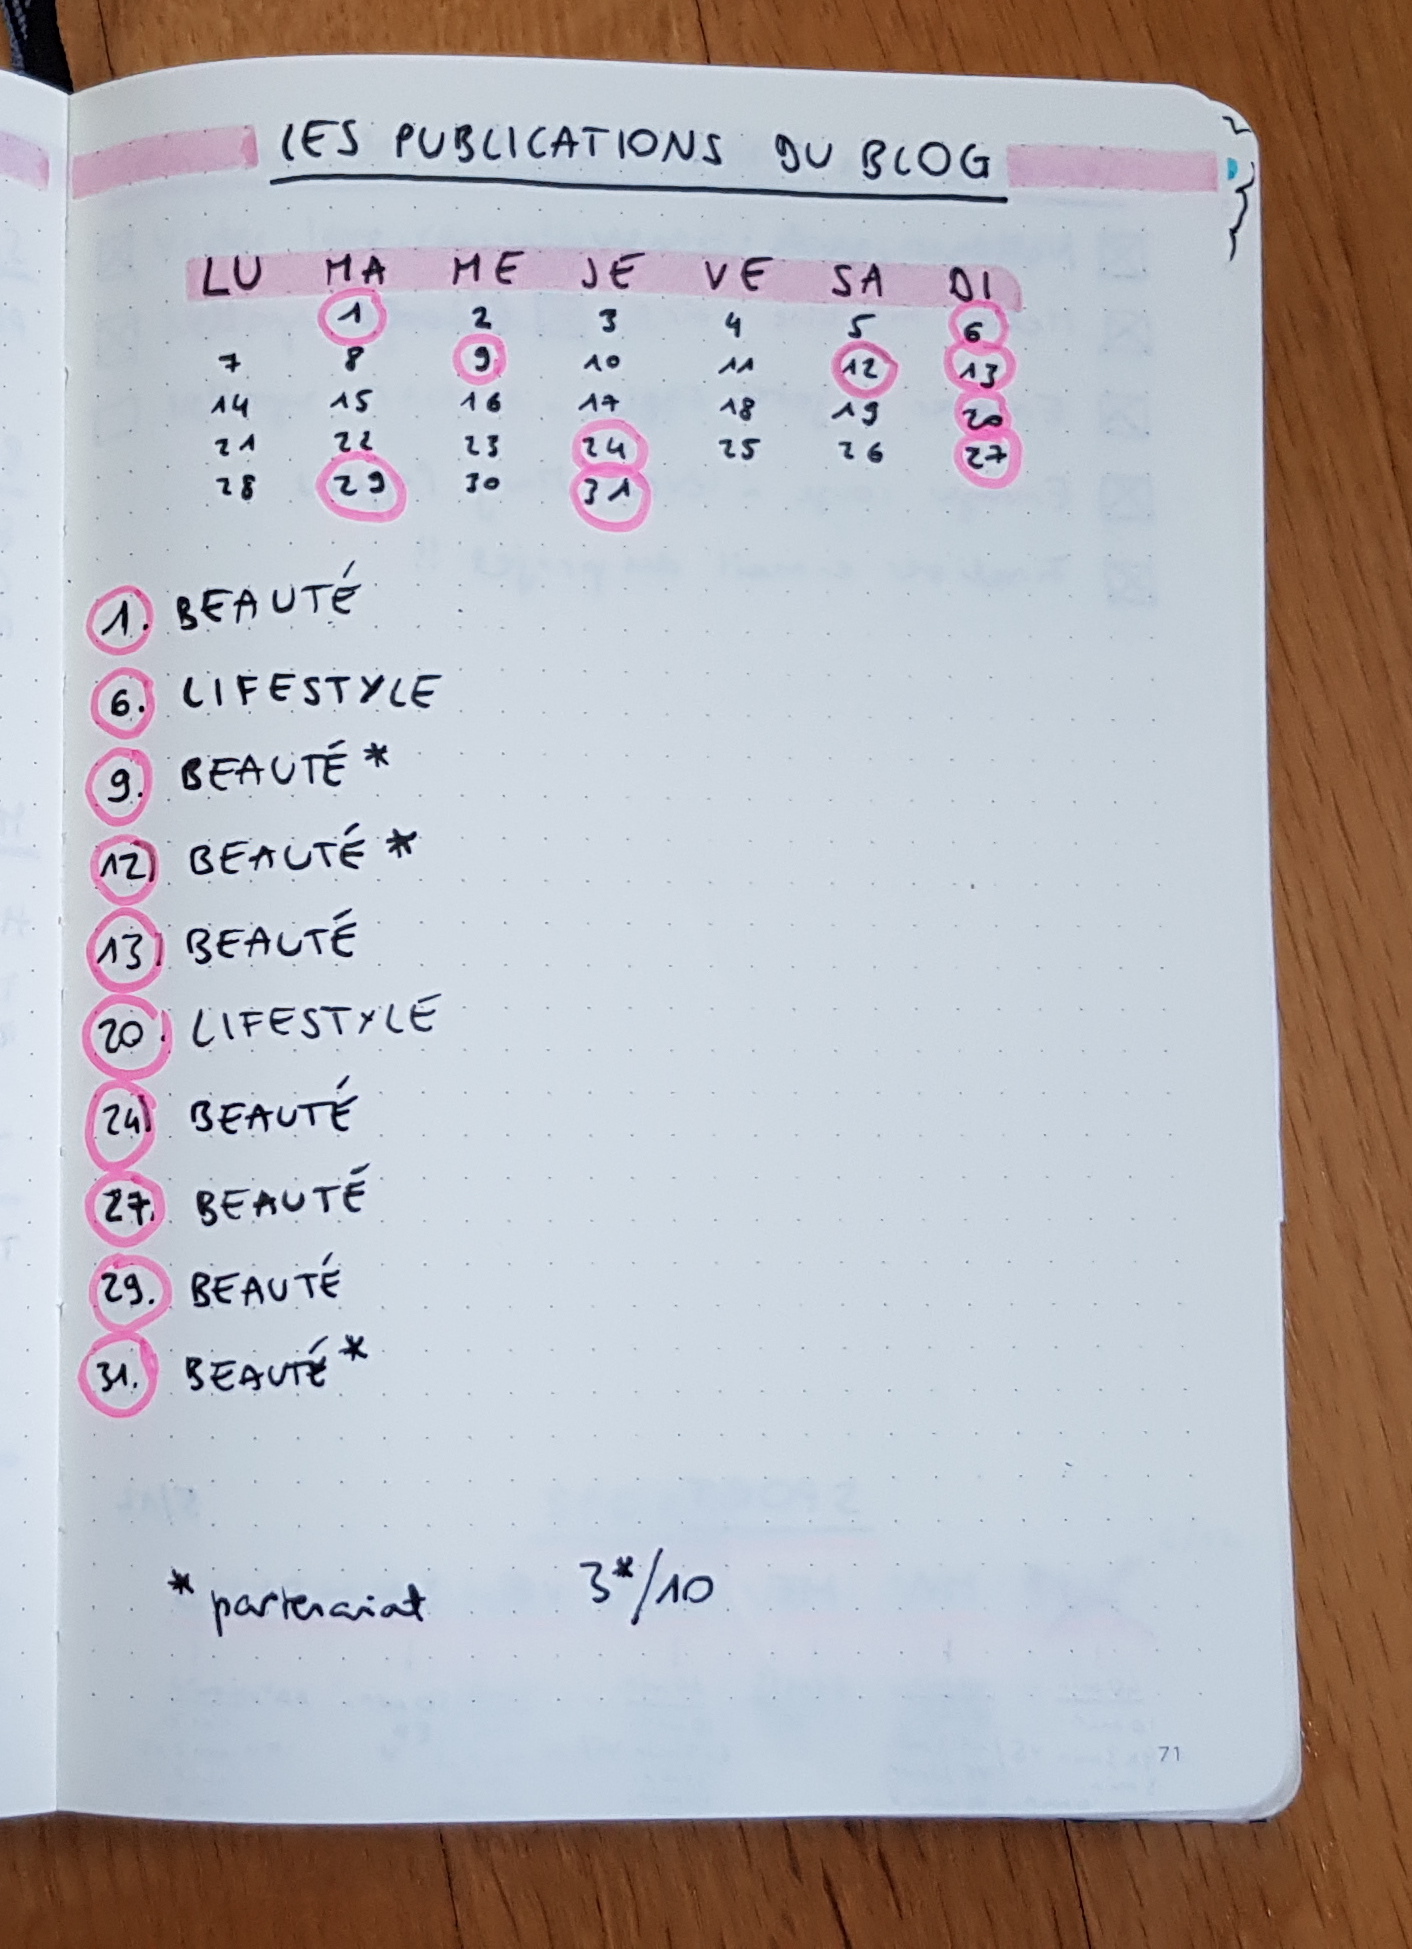 LES PUBLICATIONS DU BLOG
LU MA ME JE VE SA DI
1 2 3 4 5 6
7 8 9 10 11 12 13
14 15 16 17 18 19 20
21 22 23 24 25 26 27
28 29 30 31
1. BEAUTÉ
6. LIFESTYLE
9. BEAUTÉ *
12. BEAUTÉ *
13. BEAUTÉ
20. LIFESTYLE
24. BEAUTÉ
27. BEAUTÉ
29. BEAUTÉ
31. BEAUTÉ *
* partenariat 3*/10
71